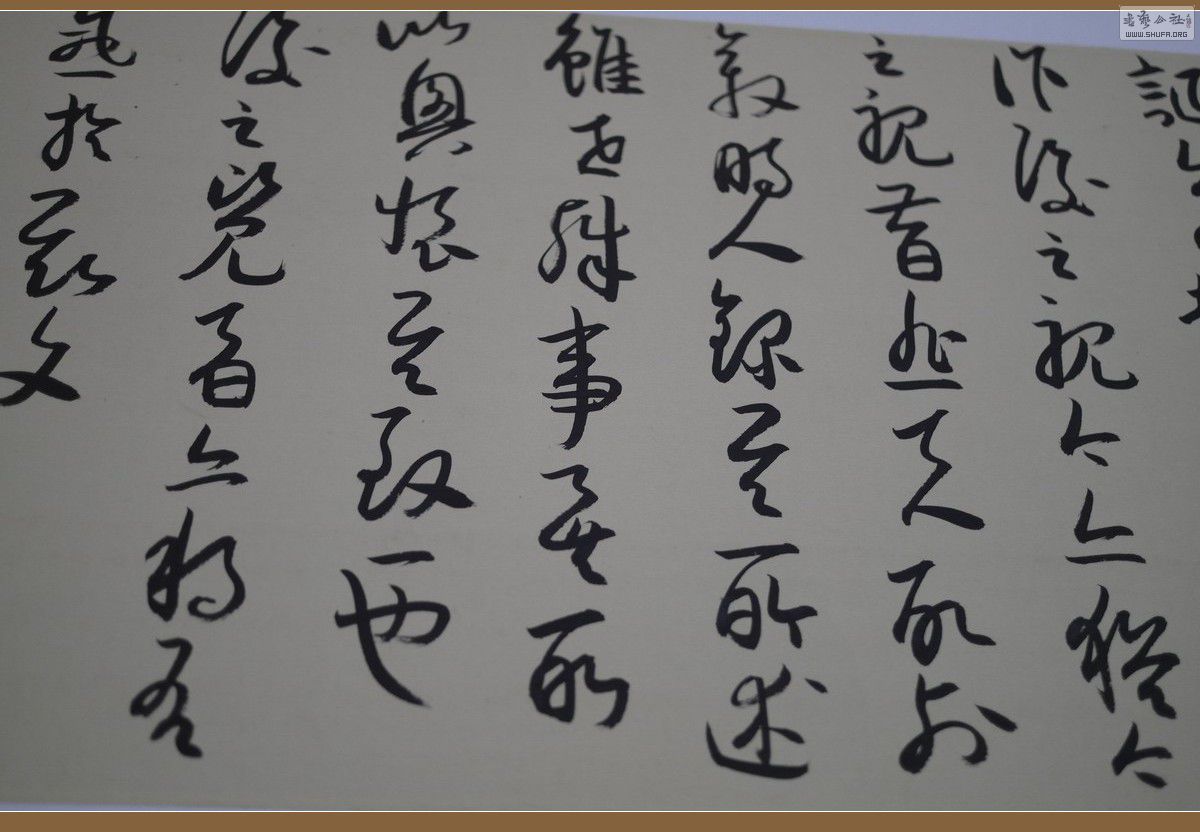 誕
作後之視今亦猶今
之視昔悲夫故列
叙時人錄其所述
雖世殊事異所
以興懷其致一也
後之覽者亦將有
感於斯文
書藝公社
WWW.SHUFA.ORG